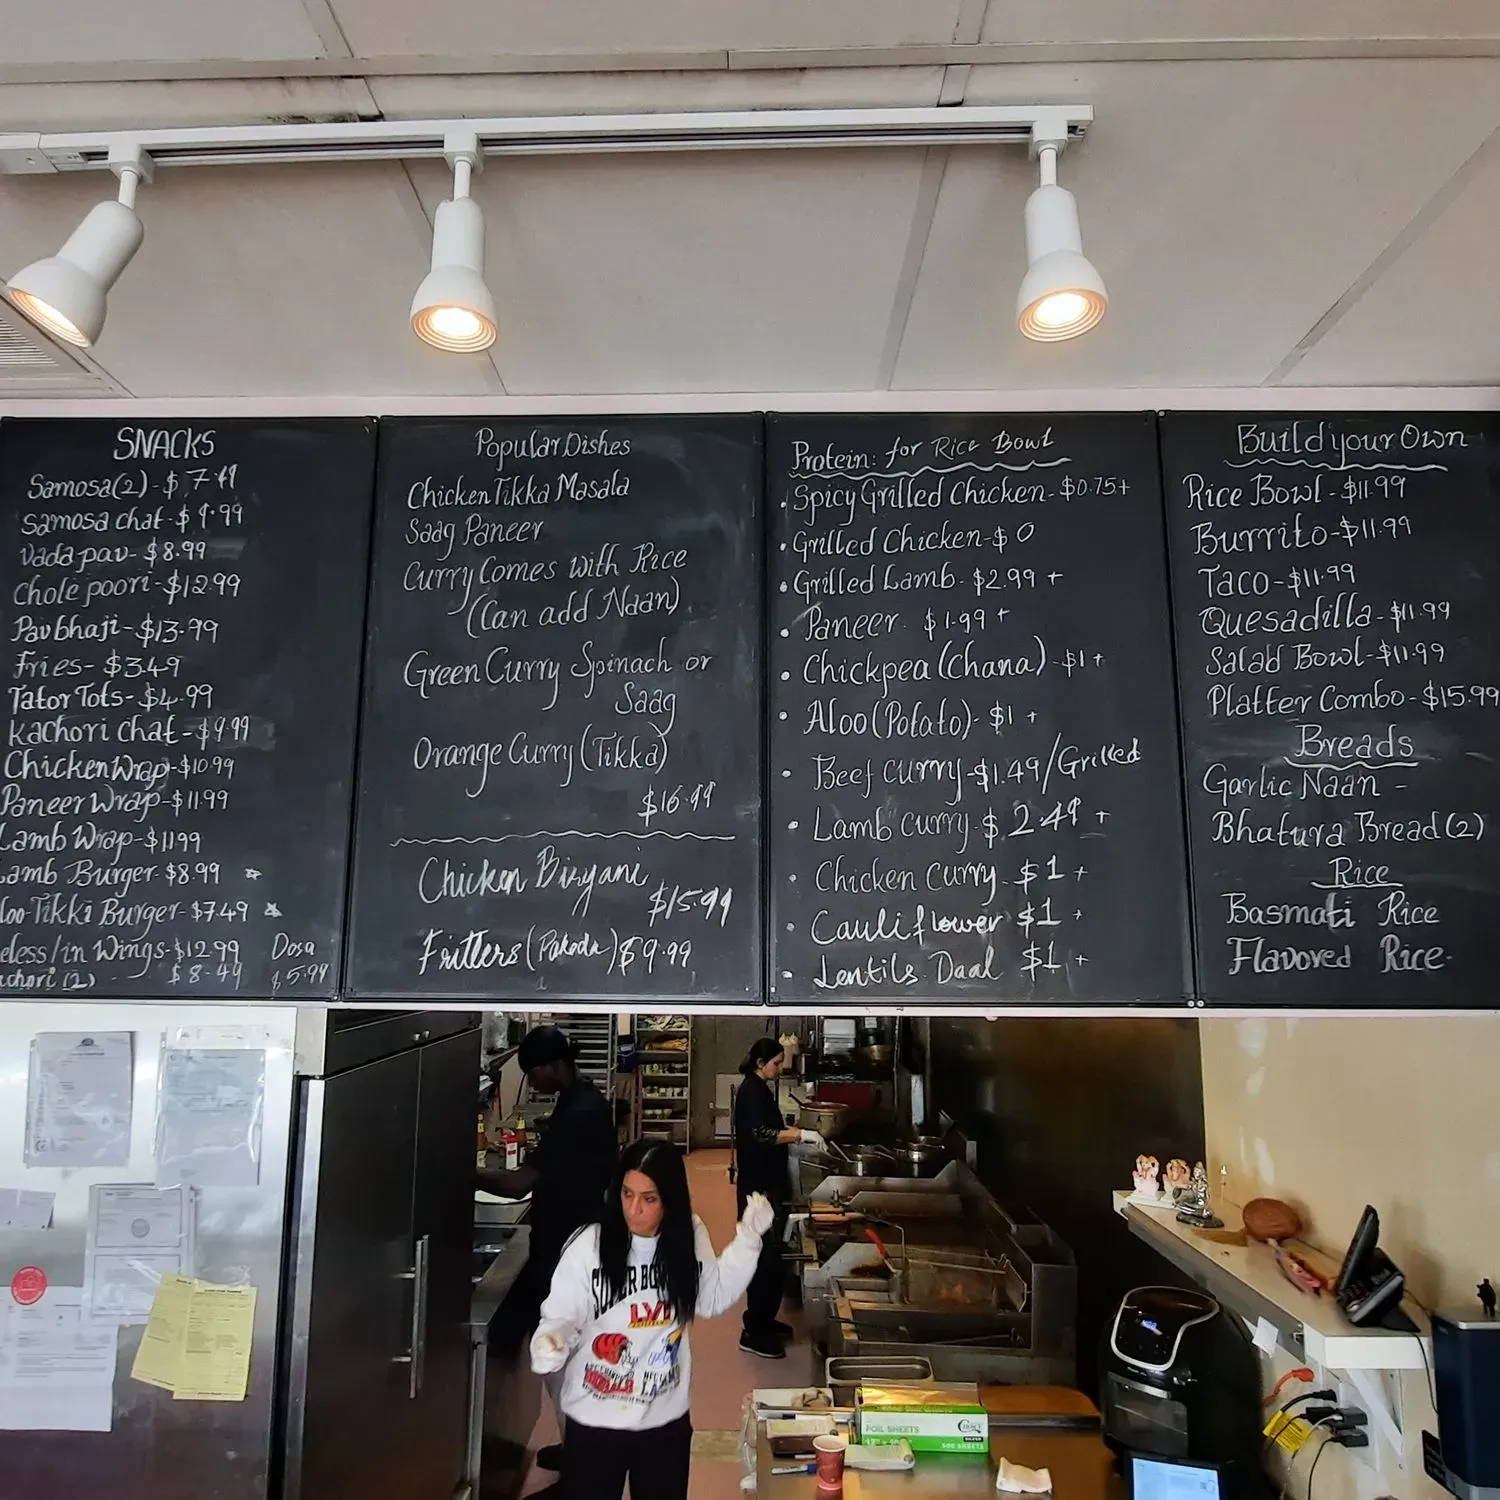 SNACKS
Samosa(2)-$7.49
Samosa chat-$9.99
Vada pav-$8.99
Chole poori-$12.99
Pav bhaji-$13.99
Fries-$3.49
Tator Tots-$4.99
Kachori chat-$9.99
Chicken Wrap-$10.99
Paneer Wrap-$11.99
Lamb Wrap-$11.99
Lamb Burger-$8.99
loo-Tikki Burger-$7.49
eless/in Wings-$12.99 Dosa
achori (2) - $8.49 $5.99
Popular Dishes
Chicken Tikka Masala
Saag Paneer
Curry Comes with Rice
(Can add Naan)
Green Curry Spinach or
Saag
Orange Curry (Tikka)
$16.99
Chicken Biryani
$15.99
Fritters (Pakoda) $9.99
Protein: for Rice Bowl
Spicy Grilled Chicken-$0.75+
Grilled Chicken-$0
Grilled Lamb-$2.99+
Paneer $1.99+
Chickpea (Chana)-$1+
Aloo (Potato)-$1+
Beef Curry-$1.49/Grilled
Lamb Curry-$2.49+
Chicken Curry $1+
Cauliflower $1+
Lentils Daal $1+
Build your Own
Rice Bowl-$11.99
Burrito-$11.99
Taco-$11.99
Quesadilla-$11.99
Salad Bowl-$11.99
Platter Combo-$15.99
Breads
Garlic Naan -
Bhatura Bread (2)
Rice
Basmati Rice
Flavored Rice-
SUPER BOWL
LVI
FOIL SHEETS